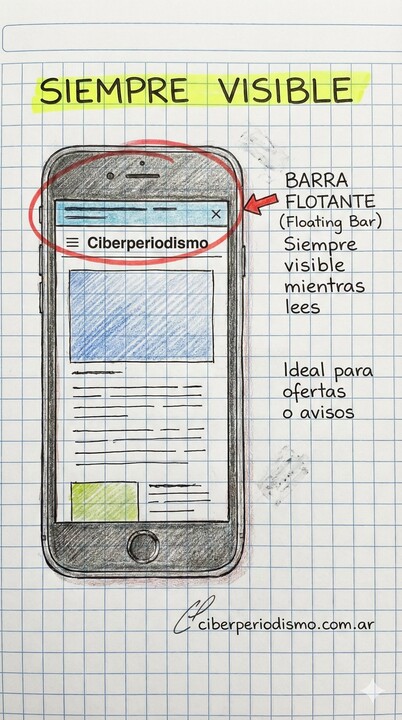 SIEMPRE VISIBLE
BARRA
FLOTANTE
(Floating Bar)
Siempre
visible
mientras
lees
Ciberperiodismo
Ideal para
ofertas
o avisos
ciberperiodismo.com.ar